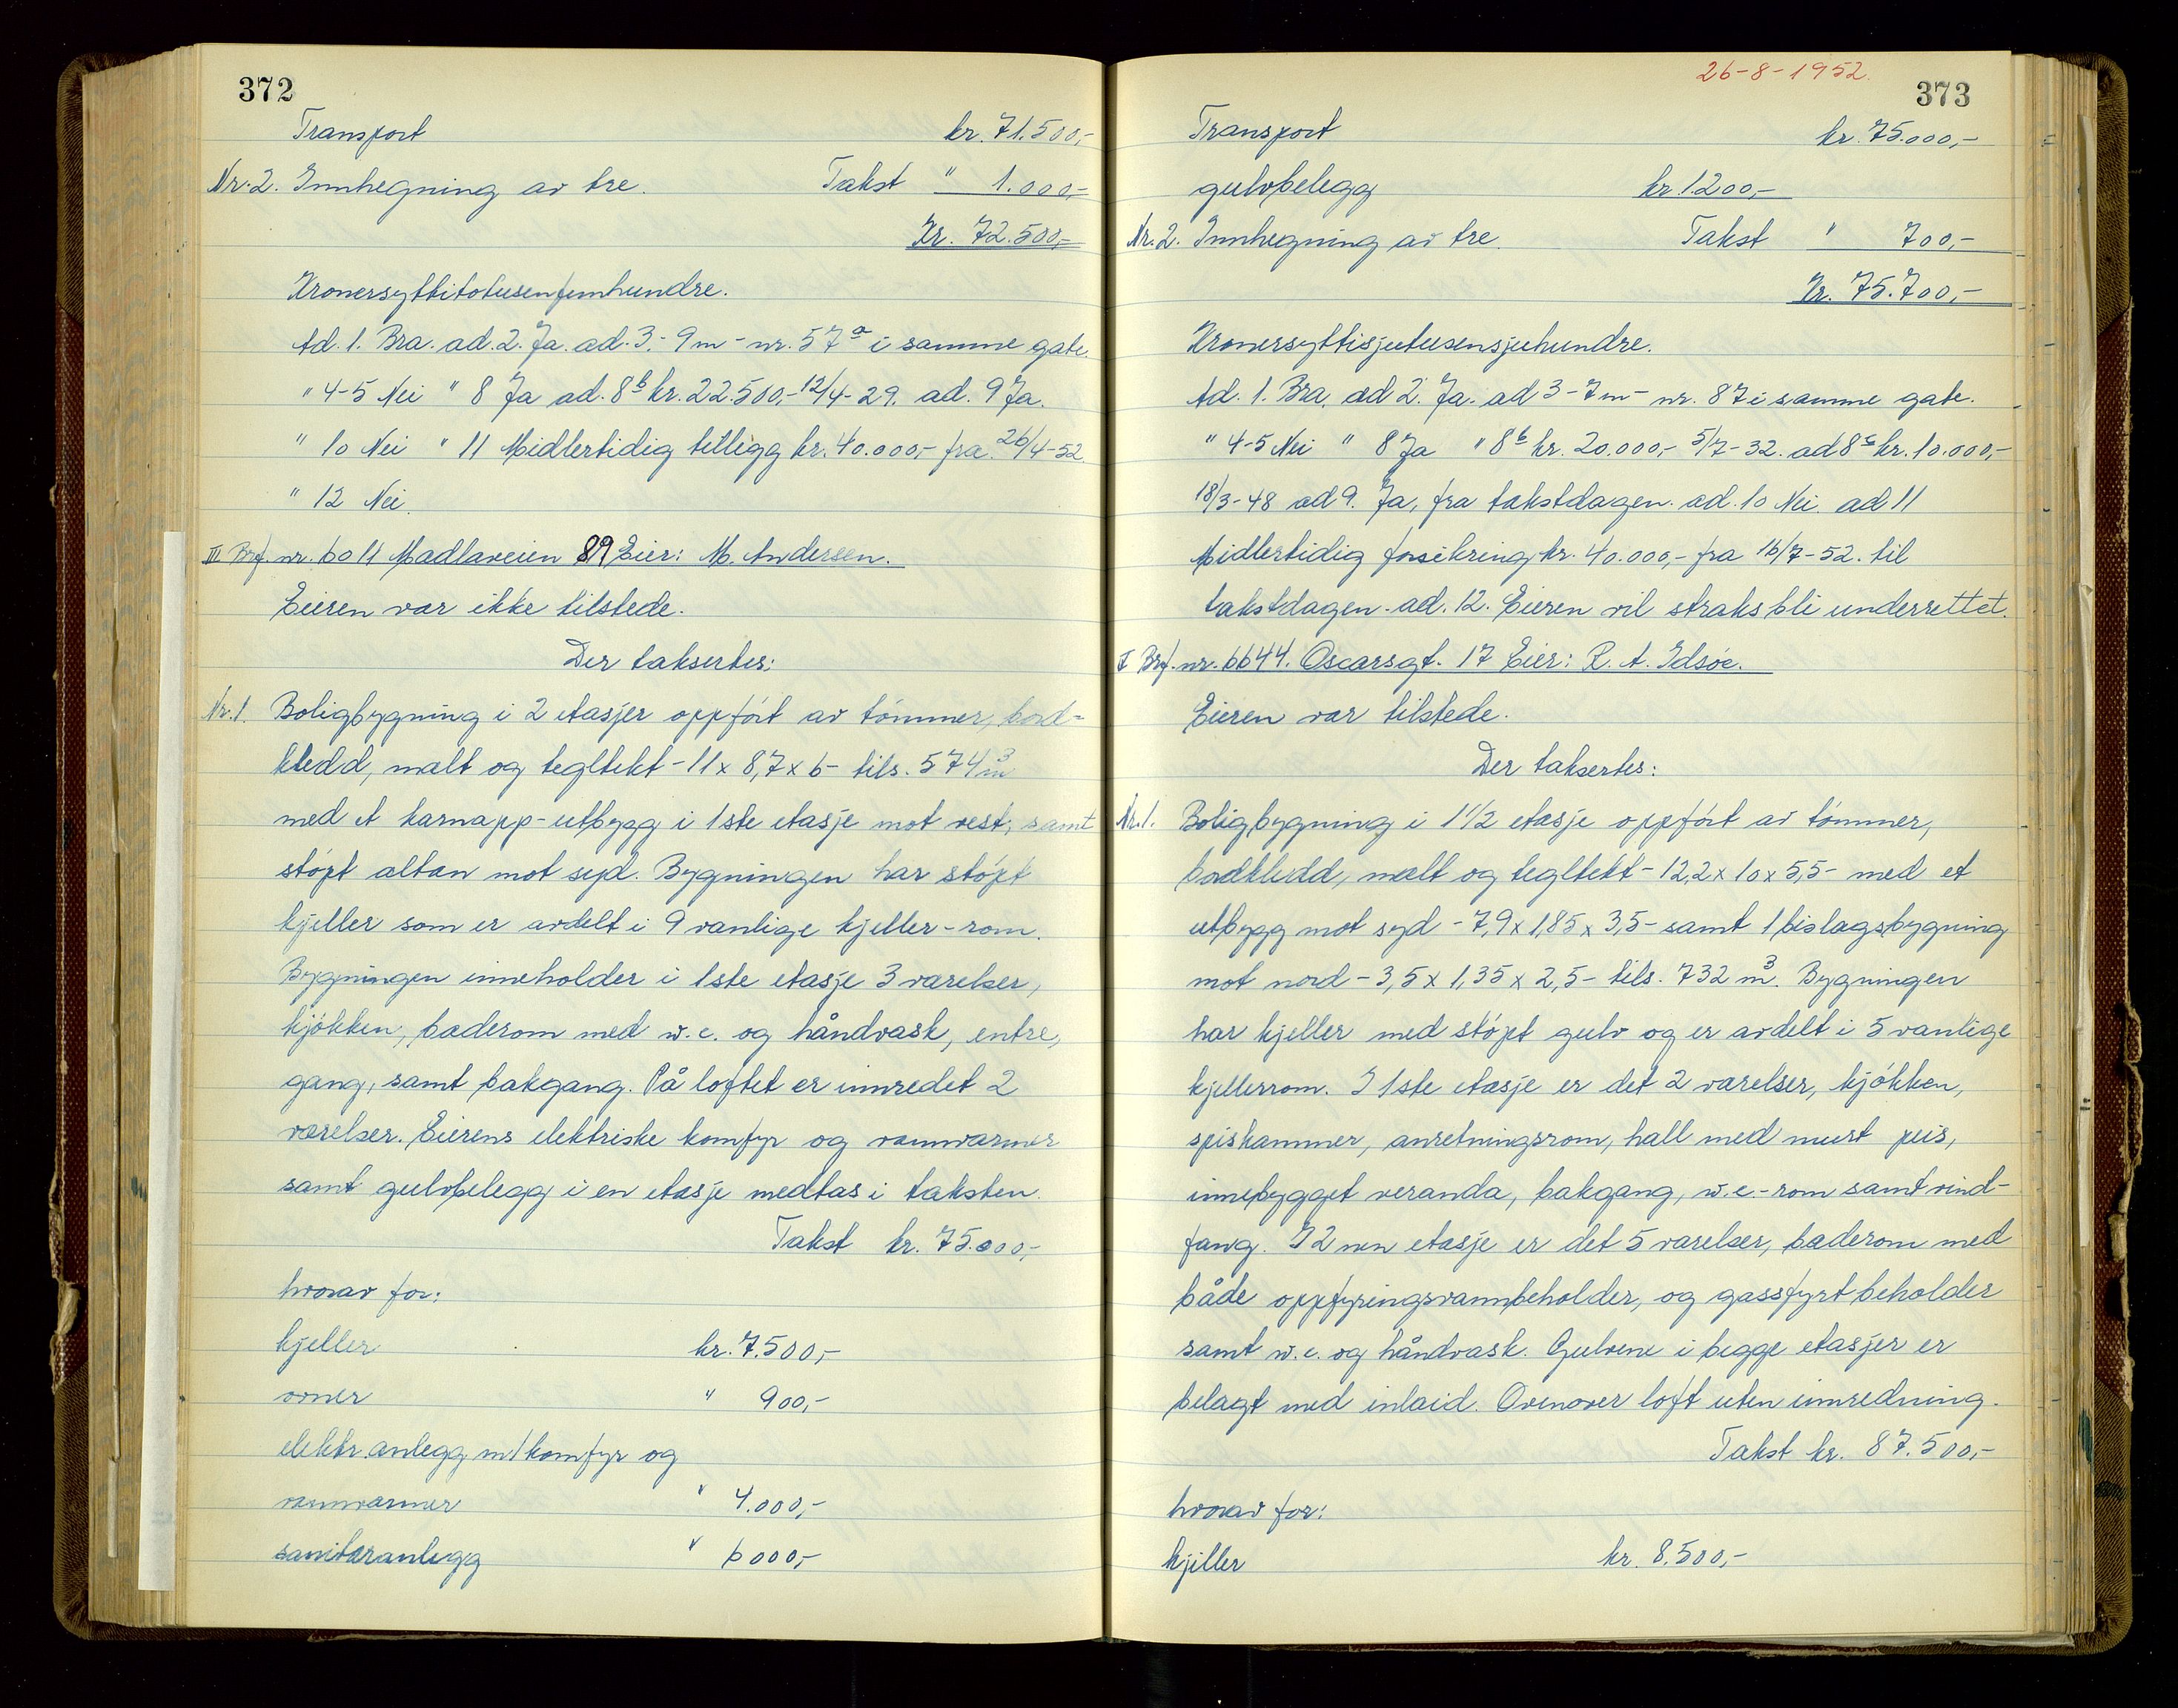 372
Transport kr. 71.500,-
Nr. 2. Innhegning av tre. Takst " 1.000,-
Kr. 72.500,-
Kronersyttitotusenfemhundre.
Ad. 1. Bra. ad. 2. Ja. ad. 3.- 9 m - nr. 57a i samme gate.
" 4-5 Nei " 8 Ja ad. 8b kr. 22.500,- 12/4-29. ad. 9 Ja.
" 10 Nei " 11 Midlertidig tillegg kr. 40.000,- fra 26/4-52.
" 12 Nei.
III Brf. nr. 6011 Madlaveien 89 Eier: M. Andersen.
Eieren var ikke tilstede.
Der taksertes:
Nr. 1. Boligbygning i 2 etasjer oppført av tømmer, bord-
kledd, malt og tegltekt - 11 x 8,7 x 6 - tils. 574 m3
med et karnapp-utbygg i 1ste etasje mot vest, samt
støpt altan mot syd. Bygningen har støpt
kjeller som er avdelt i 9 vanlige kjeller-rom.
Bygningen inneholder i 1ste etasje 3 værelser,
kjøkken, baderom med w.c. og håndvask, entre,
gang, samt bakgang. På loftet er innredet 2
værelser. Eierens elektriske komfyr og vannvarmer
samt gulvbelegg i en etasje medtas i taksten.
Takst kr. 75.000,-
hvorav for:
kjeller kr. 7.500,-
ovner " 900,-
elektr. anlegg m/komfyr og
vannvarmer " 4.000,-
sanitæranlegg " 6000,-
26-8-1952.
373
Transport kr. 75.000,-
gulvbelegg kr. 1200,-
Nr. 2. Innhegning av tre. Takst " 700,-
Kr. 75.700,-
Kronersyttisjutusensjuhundre.
Ad. 1. Bra. ad 2. Ja. ad 3 - 7 m - nr. 87 i samme gate.
" 4-5 Nei " 8 Ja " 8b kr. 20.000,- 5/7-32. ad 8c kr. 10.000,-
18/3-48 ad 9. Ja, fra takstdagen. ad. 10 Nei. ad 11
Midlertidig forsikring kr. 40.000,- fra 16/7-52. til
takstdagen. ad. 12. Eieren vil straks bli underrettet.
I Brf. nr. 6644. Oscarsgt. 17 Eier: R. A. Idsøe.
Eieren var tilstede.
Der taksertes:
Nr. 1. Boligbygning i 1 1/2 etasje oppført av tømmer,
bordkledd, malt og tegltekt - 12,2 x 10 x 5,5 - med et
utbygg mot syd - 7,9 x 1,85 x 3,5 - samt 1 bislagsbygning
mot nord - 3,5 x 1,35 x 2,5 - tils. 732 m3. Bygningen
har kjeller med støpt gulv og er avdelt i 5 vanlige
kjellerrom. I 1ste etasje er det 2 værelser, kjøkken,
spiskammer, anretningsrom, hall med murt peis,
innebygget veranda, bakgang, w.c.-rom samt vind-
fang. I 2nen etasje er det 5 værelser, baderom med
både oppfyringsvannbeholder, og gassfyrt beholder
samt w.c. og håndvask. Gulvene i begge etasjer er
belagt med inlaid. Ovenover loft uten innredning.
Takst kr. 87.500,-
hvorav for:
kjeller kr. 8.500,-